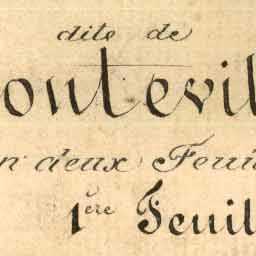 dite de
ontevil
n deux Feui
1ère Feuil